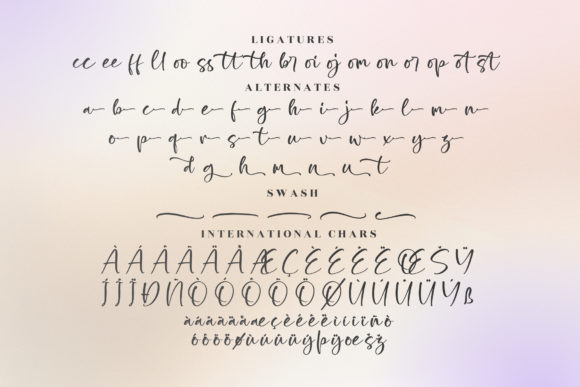 LIGATURES
cc ee ff ll oo ss tt th br oi oj om on or op ot st
ALTERNATES
a b c d e f g h i j k l m n
o p q r s t u v w x y z
d g h m n u t
SWASH
INTERNATIONAL CHARS
À Á Â Ã Ä Å Æ Ç È É Ê Ë Œ Š Ÿ
Ì Í Î Ï Ð Ñ Ò Ó Ô Õ Ö Ø Ù Ú Û Ü Ý ß
à á â ã ä å æ ç è é ê ë ì í î ï ñ ò
ó ô õ ö ø ù ú û ü ý þ ÿ œ š ž